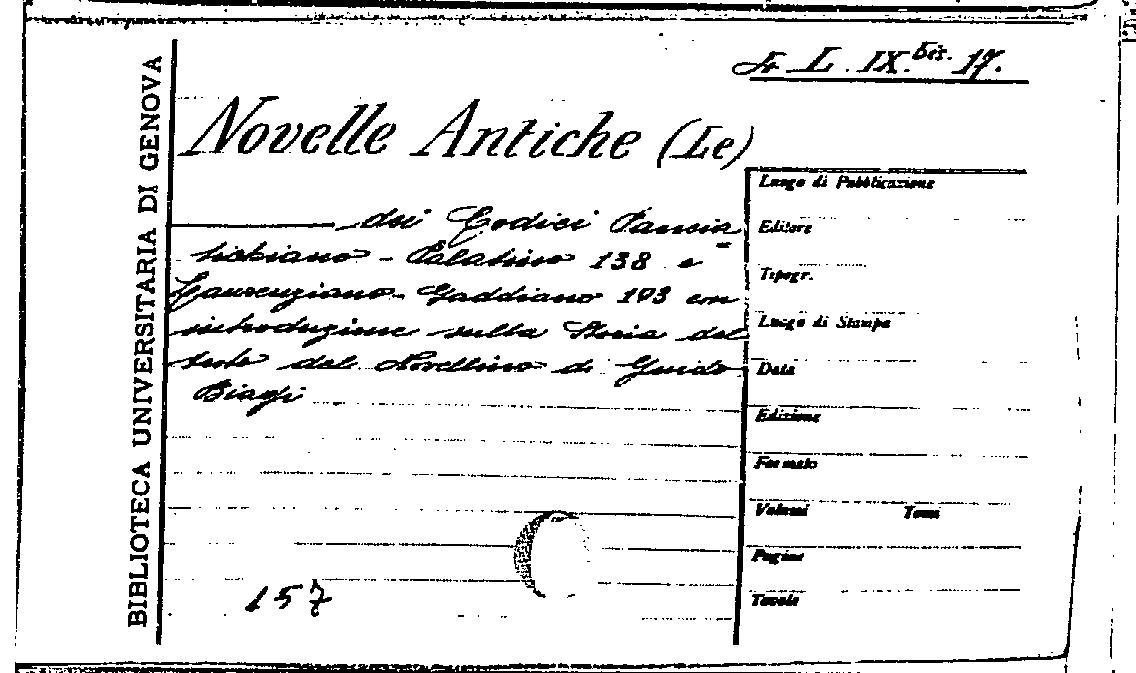 BIBLIOTECA UNIVERSITARIA DI GENOVA
L. IX. bis. 17.
Novelle Antiche (Le)
dei Codici Pancia
tichiano - Palatino 138 e
Laurenziano - Gaddiano 193 con
introduzione sulla Storia del
testo del Novellino di Guido
Biagi
157
Luogo di Pubblicazione
Editore
Tipogr.
Luogo di Stampa
Data
Edizione
Formato
Volumi Tomi
Pagine
Tavole